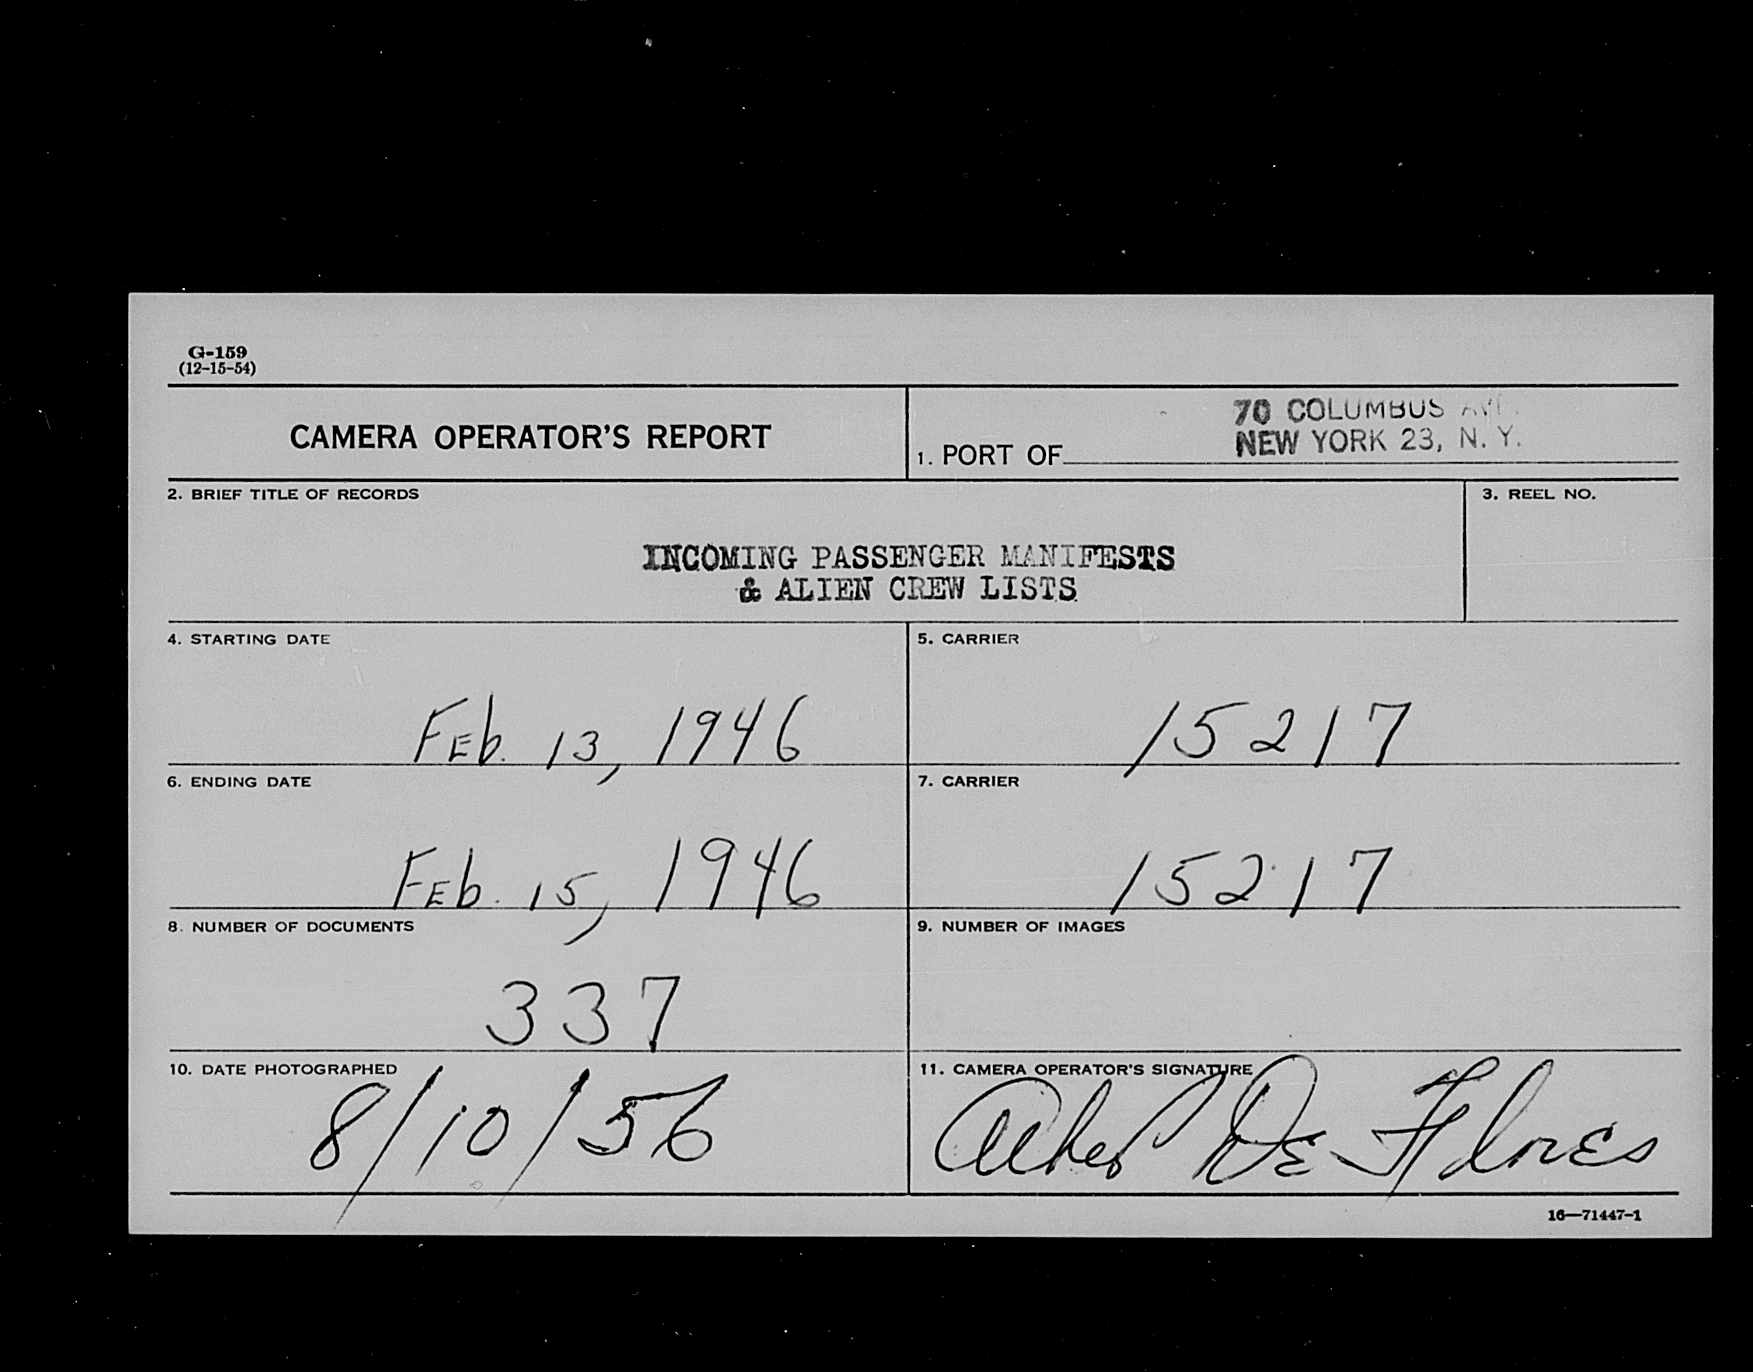 G-159
(12-15-54)
CAMERA OPERATOR'S REPORT
70 COLUMBUS AVE.
NEW YORK 23, N. Y.
1. PORT OF
2. BRIEF TITLE OF RECORDS
3. REEL NO.
INCOMING PASSENGER MANIFESTS
& ALIEN CREW LISTS
4. STARTING DATE
Feb. 13, 1946
5. CARRIER
15217
6. ENDING DATE
Feb. 15, 1946
7. CARRIER
15217
8. NUMBER OF DOCUMENTS
337
9. NUMBER OF IMAGES
10. DATE PHOTOGRAPHED
8/10/56
11. CAMERA OPERATOR'S SIGNATURE
De Flores
16—71447-1